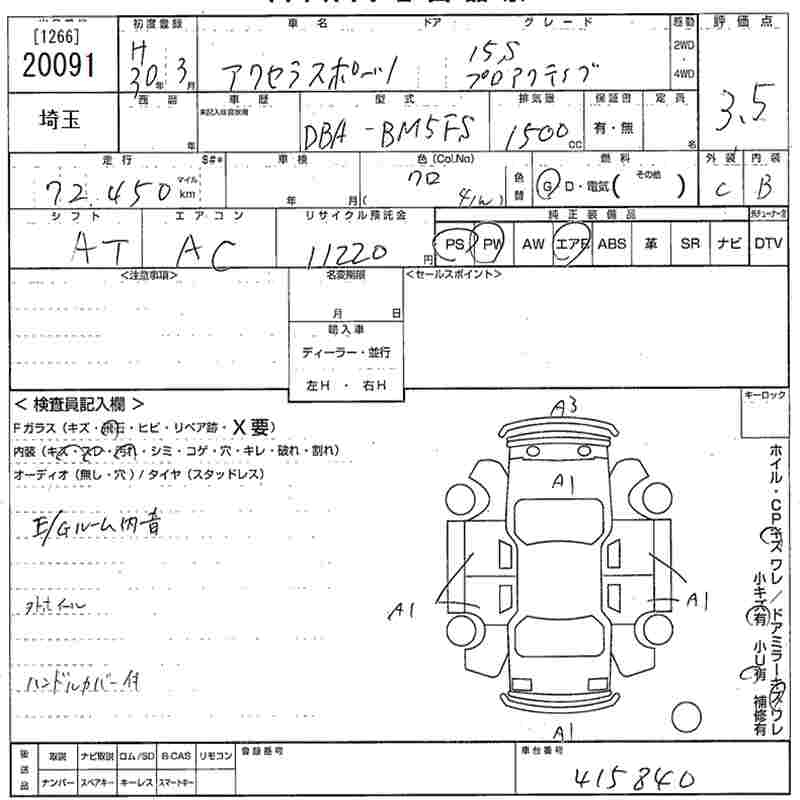 [1266]
20091
初度登録
車名
ドア
グレード
駆動
評価点
H
30年3月
アクセラスポーツ
15S
プロアクティブ
2WD
4WD
3.5
埼玉
商品
車歴
型式
排気量
保証書
定員
未記入は自家用
年
DBA-BM5FS
1500
CC
有・無
名
走行
S#*
車検
色(Col.No)
燃料
外装
内装
72.450
マイル
km
年
月
クロ
(41W)
色替
G D・電気(
その他
)
C
B
シフト
エアコン
リサイクル預託金
純正装備品
AT
AC
11220
円
PS
PW
AW
エアB
ABS
革
SR
ナビ
DTV
<注意事項>
名変期限
<セールスポイント>
月
日
輸入車
ディーラー・並行
左H・右H
キーロック
<検査員記入欄>
Fガラス(キズ・飛石・ヒビ・リペア跡・X要)
内装(キズ・スレ・汚れ・シミ・コゲ・穴・キレ・破れ・割れ)
オーディオ(無し・穴)/タイヤ(スタッドレス)
E/Gルーム内音
外ホイール
ハンドルカバー付
A3
A1
A1
A1
A1
ホイル・CPキズワレ/ドアミラーキズワレ
小キズ有 小U有 補修有
後送品
取説
ナビ取説
ロム/SD
B-CAS
リモコン
ナンバー
スペアキー
キーレス
スマートキー
登録番号
車台番号
415840